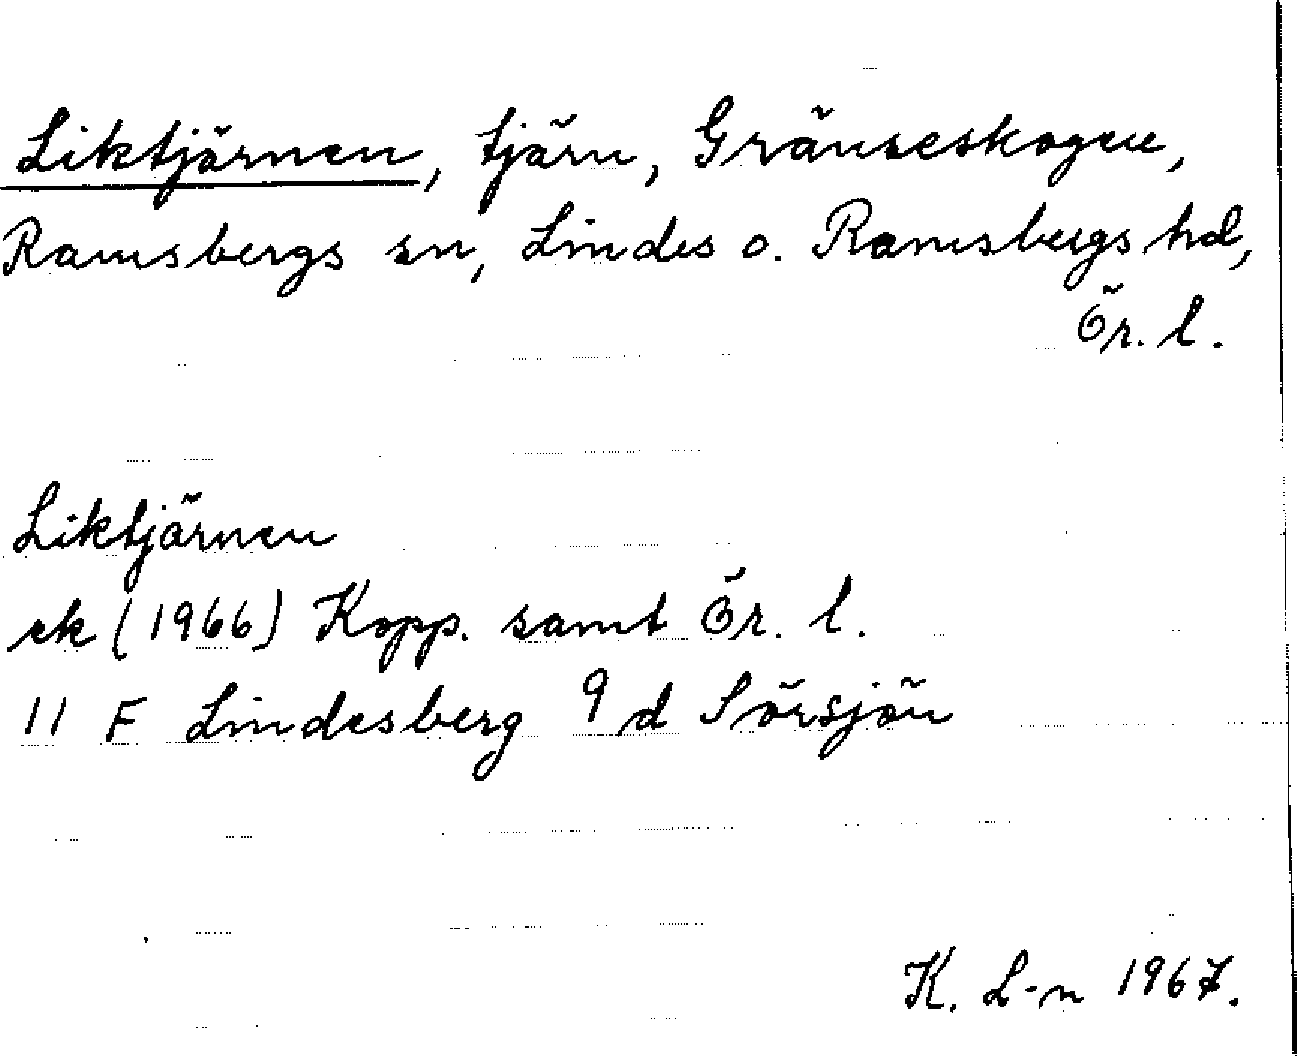 Liktjärnen, tjärn, Gränseskogen,
Ramsbergs sn, Lindes o. Ramsbergs hd,
Ör. l.
Liktjärnen
ek (1966) Kopp. samt Ör. l.
11 F Lindesberg 9 d Sörsjön
K. L-n 1967.